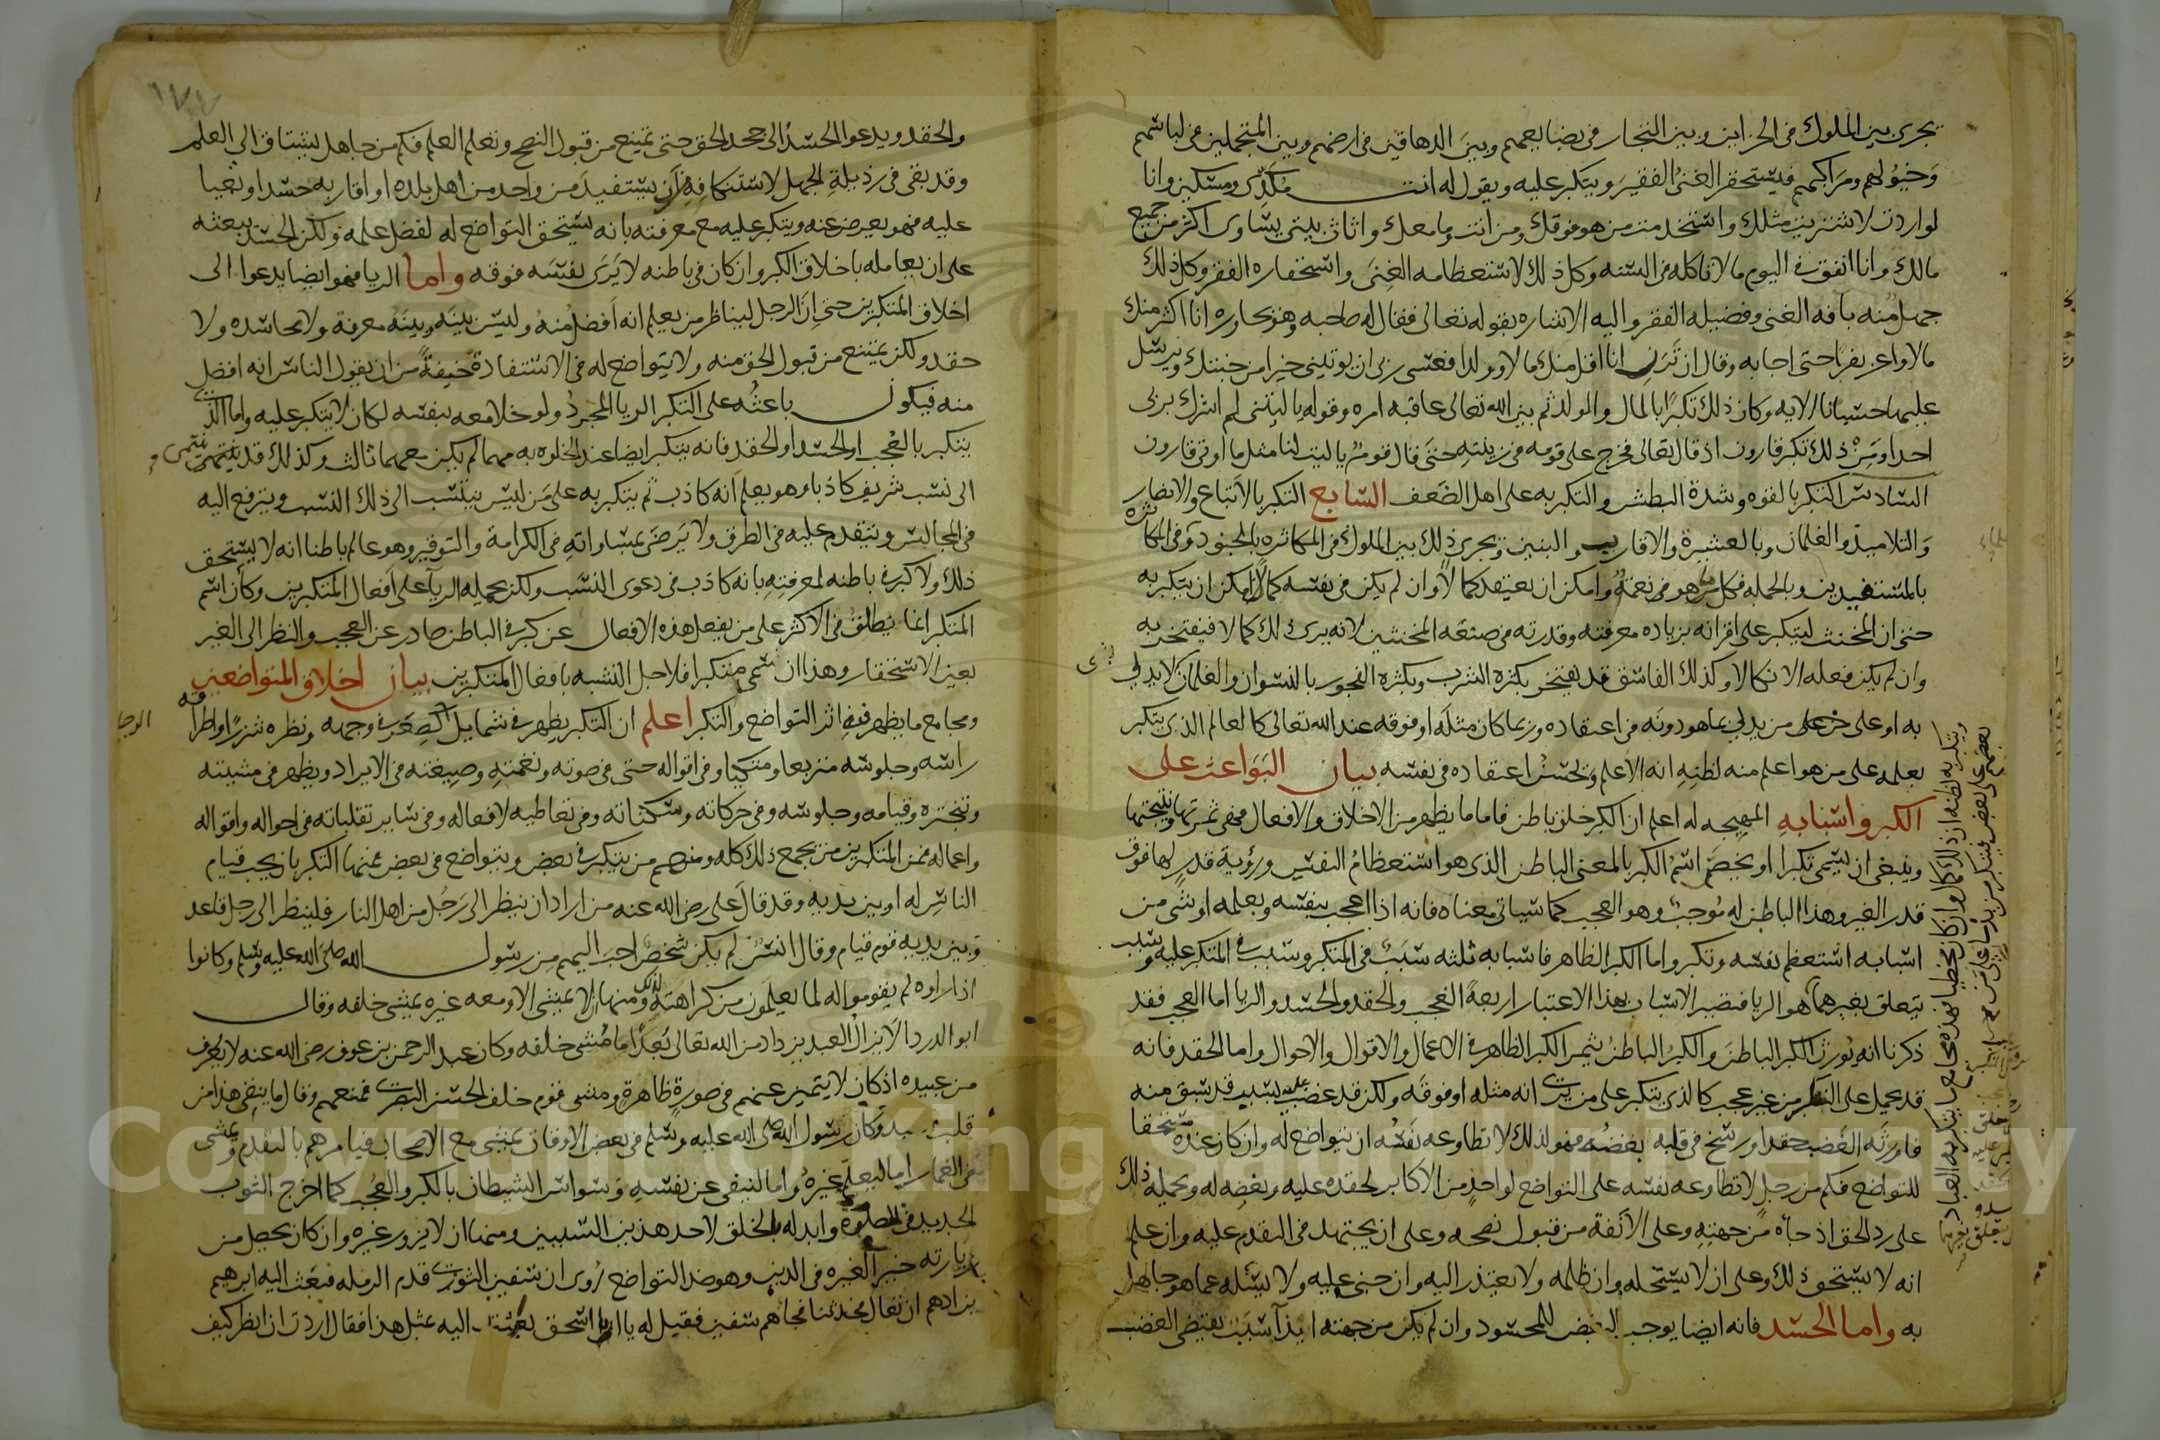 يجرى بين الملوك فى الخزاين وبين التجار فى بضايعهم وبين الدهاقين فى ارضهم وبين المتجملين فى لباسهم
وخيولهم ومراكبهم فيستحقر الغنى الفقير ويتكبر عليه ويقول له انت مكدى ومسكين وانا
لو اردت لاشتريت مثلك واستخدمت من هو فوقك ومن انت وما معك واثاث بيتى يساوى اكثر من جميع
مالك وانا انفق فى اليوم ما لا تاكله فى السنه وكل ذلك لاستعظامه الغنى واستحقاره الفقر وكل ذلك
جهل منه بافه الغنى وفضيله الفقر واليه الاشاره بقوله تعالى فقال له صاحبه وهو يحاوره انا اكثر منك
مالا واعز نفرا حتى اجابه وقال ان ترن انا اقل منك مالا وولدا فعسى ربى ان يوتينى خيرا من جنتك ويرسل
عليها حسبانا الايه وكان ذلك تكبرا بالمال والولد ثم بين الله تعالى عاقبه امره وقوله يا ليتنى لم اشرك بربى
احدا ومن ذلك تكبر قارون اذ قال تعالى فخرج على قومه فى زينته حتى قال قوم يا ليت لنا مثل ما اوتى قارون
السادس التكبر بالقوه وشدة البطش والتكبر به على اهل الضعف السابع التكبر بالاتباع والانصار
والتلاميذ والغلمان وبالعشيرة والاقارب والبنين ويجرى ذلك بين الملوك فى المكاثره بالجنود وفى المكاثره
بالمستفيدين وبالجمله فكل ما هو فى نعمة وامكن ان يعتقد كمالا وان لم يكن فى نفسه كمالا امكن ان يتكبر به
حتى ان المخنث ليتكبر على اقرانه بزياده معرفته وقدرته فى صنعه المخنثين لانه يرى ذلك كمالا فيفتخر به
وان لم يكن فعله الا نكالا وكذلك الفاسق قد يفتخر بكثرة الشرب وبكثره الفجور بالنسوان والغلمان يدلى
به او على من يدلى بما هو دونه فى اعتقاده وربما كان مثله او فوقه عند الله تعالى كالعالم الذى يتكبر
بعلمه على من هو اعلم منه لظنه انه الاعلم ولحسن اعتقاده فى نفسه بيان البواعث على
الكبر واسبابه المهيجه له اعلم ان الكبر خلق باطن فاما ما يظهر من الاخلاق والافعال فهى ثمرتها ونتيجتها
وينبغى ان يسمى تكبرا ويخص اسم الكبر بالمعنى الباطن الذى هو استعظام النفس ورؤية قدر لها فوق
قدر الغير وهذا الباطن له موجب وهو العجب كما سياتى معناه فانه اذا اعجب بنفسه وبعلمه او شى من
اسبابه استعظم نفسه وتكبر واما الكبر الظاهر فاسبابه ثلثه سبب فى المتكبر وسبب فى المتكبر عليه وسبب
يتعلق بغيرهما هو الريا فتصير الاسباب بهذا الاعتبار اربعة العجب والحقد والحسد والريا اما العجب فقد
ذكرنا انه يورث الكبر الباطن والكبر الباطن يثمر الكبر الظاهر فى الاعمال والاقوال والاحوال واما الحقد فانه
قد يحمل على التكبر من غير عجب كالذى يتكبر على من يرى انه مثله او فوقه ولكن قد غضب عليه بسبب قد سبق منه
فاورثه الغضب حقدا ورسخ فى قلبه بغضه فهو لذلك لا تطاوعه نفسه ان يتواضع له وان كان عنده مستحقا
للتواضع فكم من رجل لا تطاوعه نفسه على التواضع لواحد من الاكابر لحقده عليه وبغضه له ويحمله ذلك
على رد الحق اذ جاه من جهته وعلى الانفة من قبول نصحه وعلى ان يجتهد فى التقدم عليه وان علم
انه لا يستحق ذلك وعلى ان لا يستحله وان ظلمه ولا يعتذر اليه وان جنى عليه ولا يسئله عما هو جاهل
به واما الحسد فانه ايضا يوجب البغض للمحسود وان لم يكن من جهته ايذا سبب يقتضى الغضب
والحقد ويدعو الحسد الى جحد الحق حتى يمتنع من قبول النصح وتعلم العلم فكم من جاهل يشتاق الى العلم
وقد بقى فى رذيلة الجهل لاستنكافه ان يستفيد من واحد من اهل بلده او اقاربه حسدا وبغيا
عليه فهو يعرض عنه ويتكبر عليه مع معرفته بانه يستحق التواضع له لفضل علمه ولكن الحسد يبعثه
على ان يعامله باخلاق الكبر وان كان فى باطنه لا يرى نفسه فوقه واما الريا فهو ايضا يدعوا الى
اخلاق المتكبرين حتى ان الرجل ليناظر من يعلم انه افضل منه وليس بينه وبينه معرفة ولا محاسده ولا
حقد ولكن يمتنع من قبول الحق منه ولا يتواضع له فى الاستفادة خيفة من ان يقول الناس انه افضل
منه فيكون باعثه على التكبر الريا المجرد ولو خلا معه بنفسه لكان لا يتكبر عليه واما الذى
يتكبر بالعجب او الحسد او الحقد فانه يتكبر ايضا عند الخلوه به مهما لم يكن معهما ثالث وكذلك قد ينتمى
الى نسب شريف كاذبا وهو يعلم انه كاذب ثم يتكبر به على من ليس ينتسب الى ذلك النسب ويترفع اليه
فى المجالس ويتقدم عليه فى الطرق ولا يرضى بمساواته فى الكرامة والتوقير وهو عالم باطنا انه لا يستحق
ذلك ولا كبر فى باطنه لمعرفته بانه كاذب فى دعوى النسب ولكن يحمله الريا على افعال المتكبرين وكان اسم
المتكبر انما يطلق فى الاكثر على من يفعل هذه الافعال عن كبر فى الباطن صادر عن العجب والنظر الى الغير
بعين الاستحقار وهذا ان سمى متكبرا فلاجل التشبه بافعال المتكبرين بيان اخلاق المتواضعين
ومجامع ما يظهر فيه اثر التواضع والتكبر اعلم ان التكبر يظهر فى شمايل كصعر فى وجهه ونظره شزرا واطراقه
راسه وجلوسه متربعا ومتكيا وفى اقواله حتى فى صوته ونغمته وصيغته فى الايراد ويظهر فى مشيته
وتبختره وقيامه وجلوسه وفى حركاته وسكناته وفى تعاطيه لافعاله وفى ساير تقلباته فى احواله واقواله
واعماله فمن المتكبرين من يجمع ذلك كله ومنهم من يتكبر فى بعض ويتواضع فى بعض فمنها التكبر بان يحب قيام
الناس له او بين يديه وقد قال على رضى الله عنه من اراد ان ينظر الى رجل من اهل النار فلينظر الى رجل قاعد
وبين يديه قوم قيام وقال انس لم يكن شخص احب اليهم من رسول الله صلى الله عليه وسلم وكانوا
اذا راوه لم يقوموا له لما يعلمون من كراهته لذلك ومنها ان لا يمشى الا ومعه غيره يمشى خلفه وقال
ابو الدردا لا يزال العبد يزداد من الله تعالى بعدا ما مشى خلفه وكان عبد الرحمن بن عوف رضى الله عنه لا يعرف
من عبيده اذ كان لا يتميز عنهم فى صورة ظاهرة ومشى قوم خلف الحسن البصرى فمنعهم وقال ما يبقى هذا من
قلب وكان رسول الله صلى الله عليه وسلم فى بعض الاوقات يمشى مع الاصحاب فيامرهم بالتقدم ويمشى
فى الغمار اما ليعلم غيره واما لينفى عن نفسه وسواس الشيطان بالكبر والعجب كما اخرج الثوب
الجديد فى الصلوة وابدله بالخلق لاحد هذين السببين ومنها ان لا يزور غيره وان كان يحصل من
زيارته خير لغيره فى الدين وهو ضد التواضع روى ان سفين الثورى قدم الرمله فبعث اليه ابرهيم
بن ادهم ان تعال فحدثنا فجاهم سفين فقيل له يا ابا اسحق بعثت اليه بمثل هذا فقال اردت ان انظر كيف